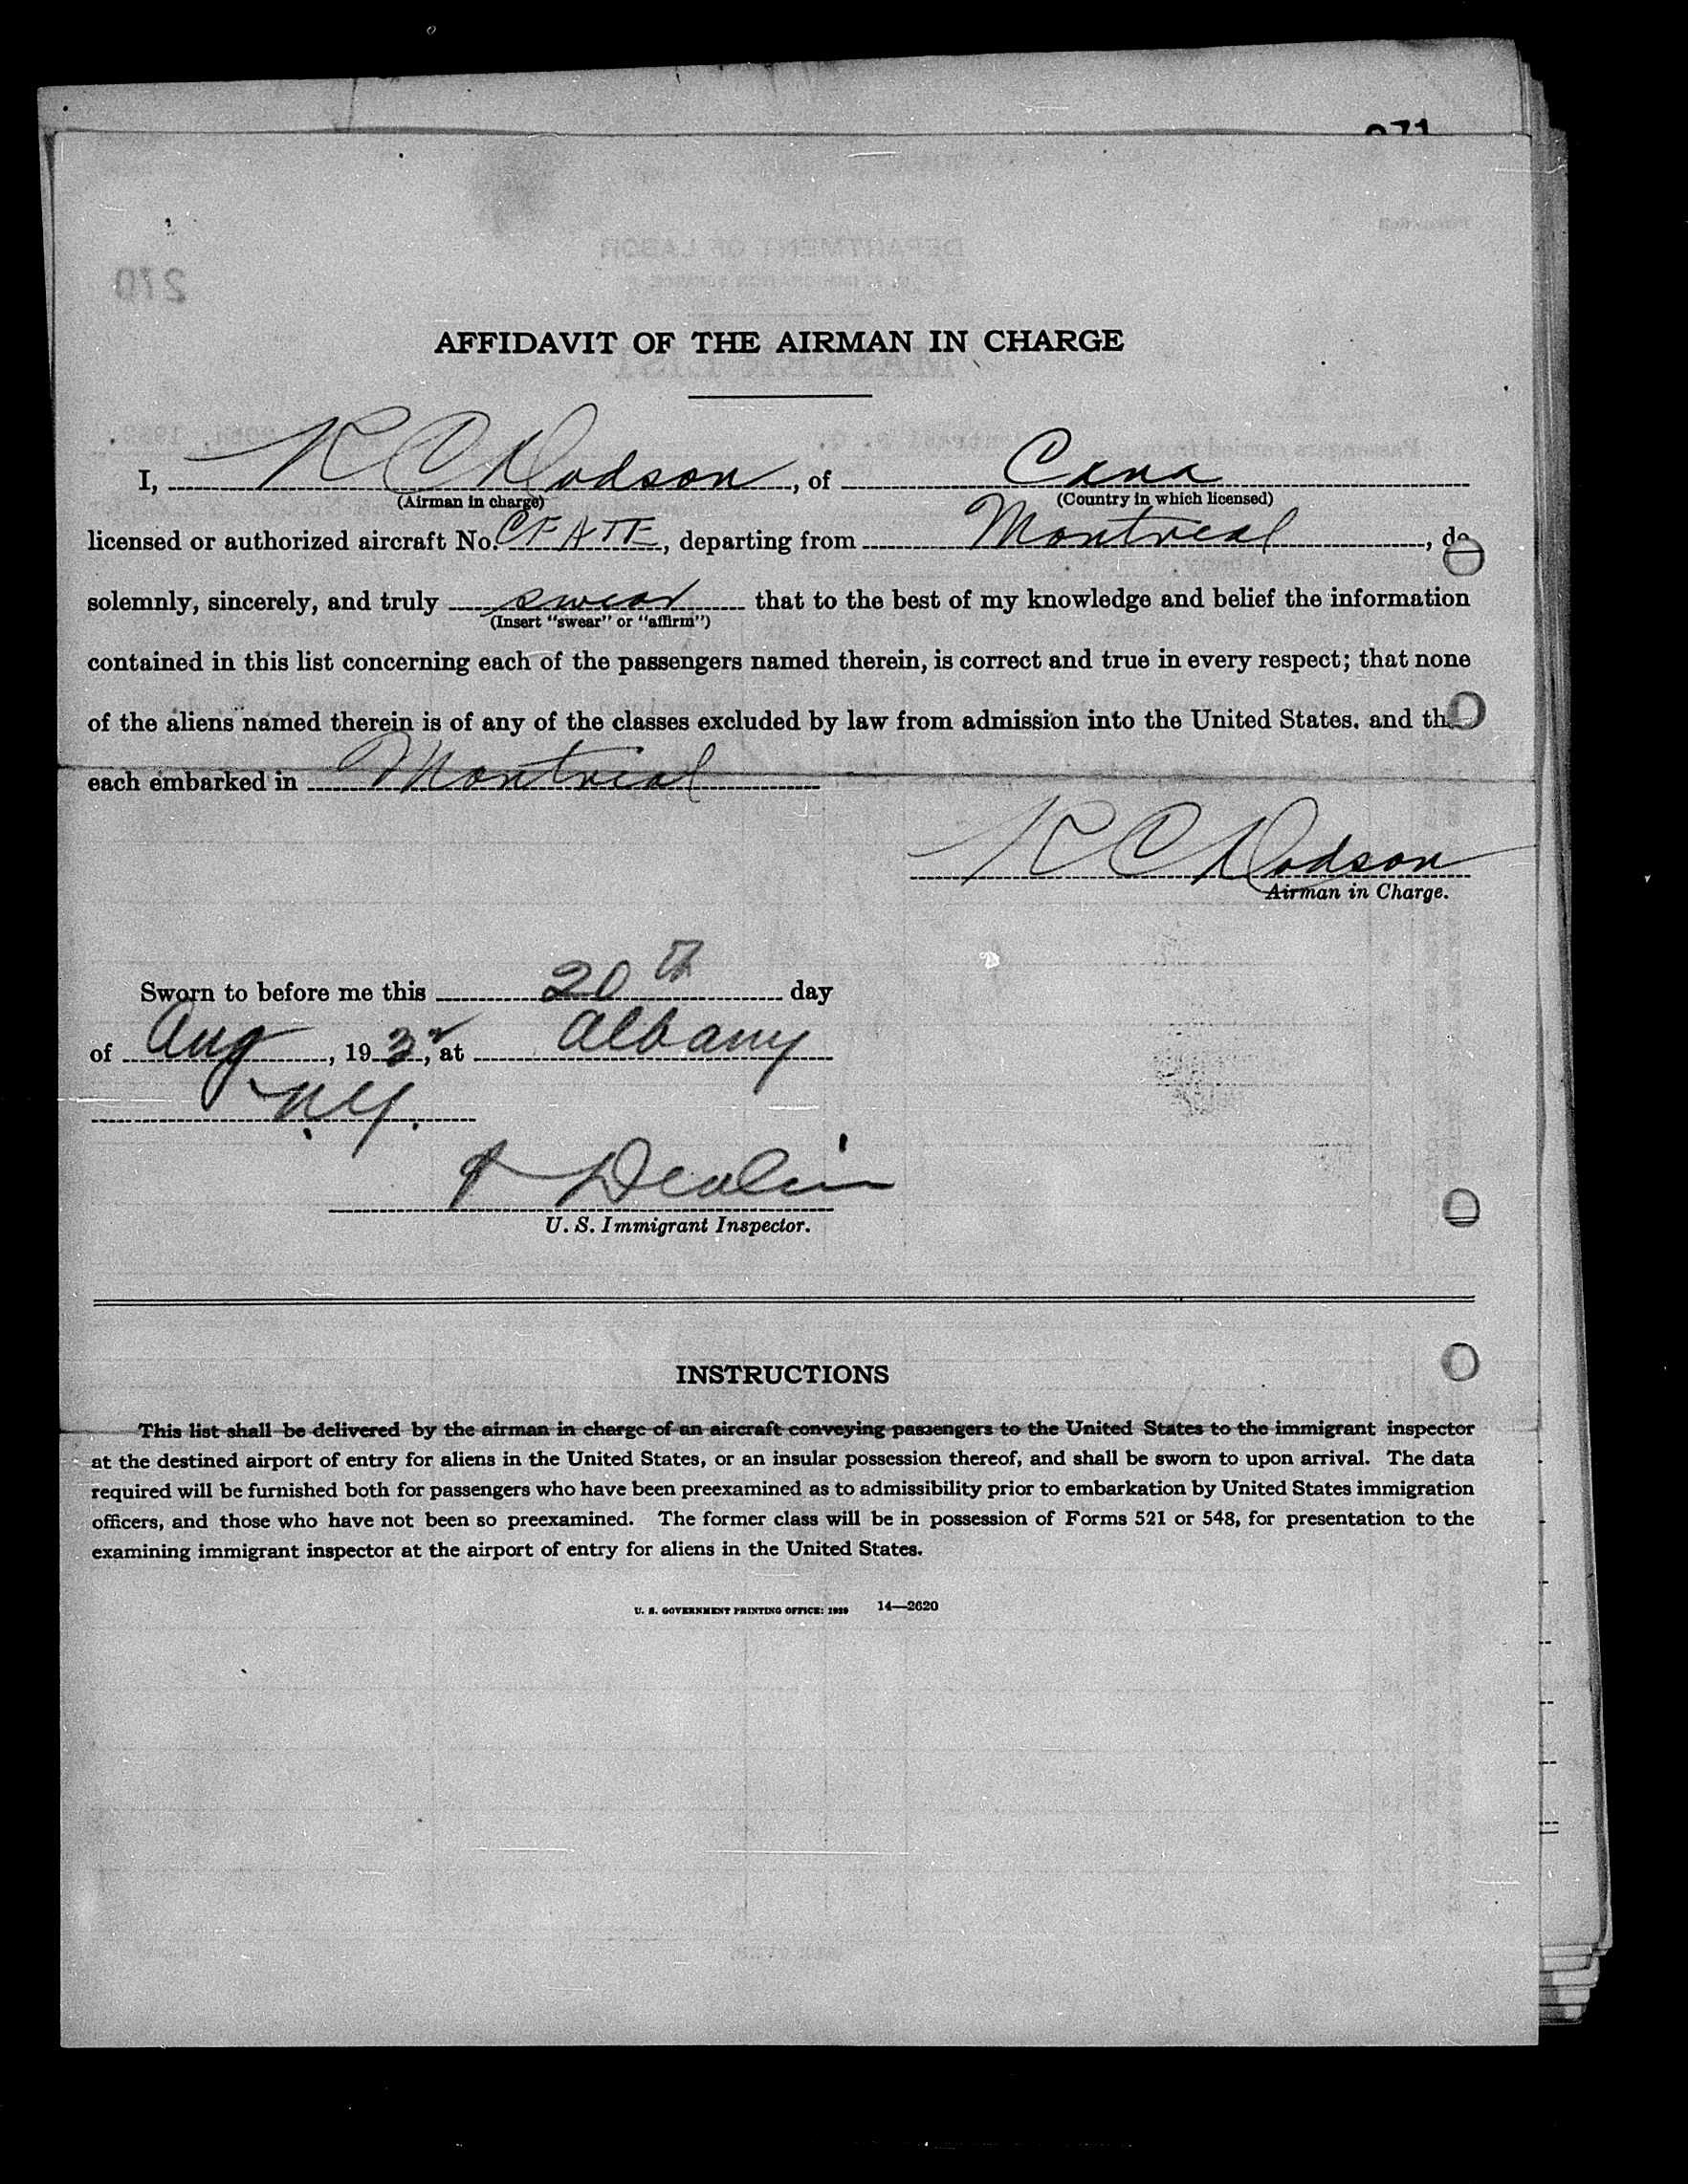 271
270
DEPARTMENT OF LABOR
MASTER LIST
AFFIDAVIT OF THE AIRMAN IN CHARGE
I, R C Dodson, of Cana
(Airman in charge) (Country in which licensed)
licensed or authorized aircraft No. CFATE, departing from Montreal, do
solemnly, sincerely, and truly swear that to the best of my knowledge and belief the information
(Insert "swear" or "affirm")
contained in this list concerning each of the passengers named therein, is correct and true in every respect; that none
of the aliens named therein is of any of the classes excluded by law from admission into the United States, and th
each embarked in Montreal
R C Dodson
Airman in Charge.
Sworn to before me this 20th day
of Aug, 1932, at Albany
N.Y.
Devlin
U. S. Immigrant Inspector.
INSTRUCTIONS
This list shall be delivered by the airman in charge of an aircraft conveying passengers to the United States to the immigrant inspector
at the destined airport of entry for aliens in the United States, or an insular possession thereof, and shall be sworn to upon arrival. The data
required will be furnished both for passengers who have been preexamined as to admissibility prior to embarkation by United States immigration
officers, and those who have not been so preexamined. The former class will be in possession of Forms 521 or 548, for presentation to the
examining immigrant inspector at the airport of entry for aliens in the United States.
U. S. GOVERNMENT PRINTING OFFICE: 1929 14—2620